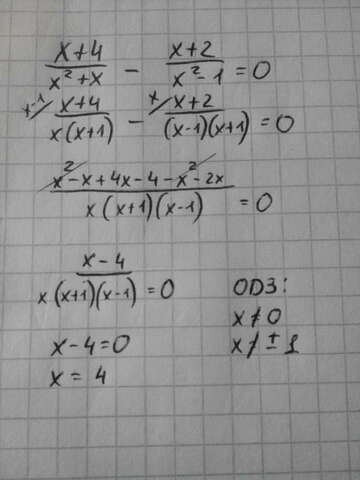 x+4/x²+x - x+2/x²-1 = 0
x-1/ x+4/x(x+1) - x/ x+2/(x-1)(x+1) = 0
x²-x+4x-4-x²-2x/x(x+1)(x-1) = 0
x-4/x(x+1)(x-1) = 0
ОДЗ:
x≠0
x≠±1
x-4=0
x = 4